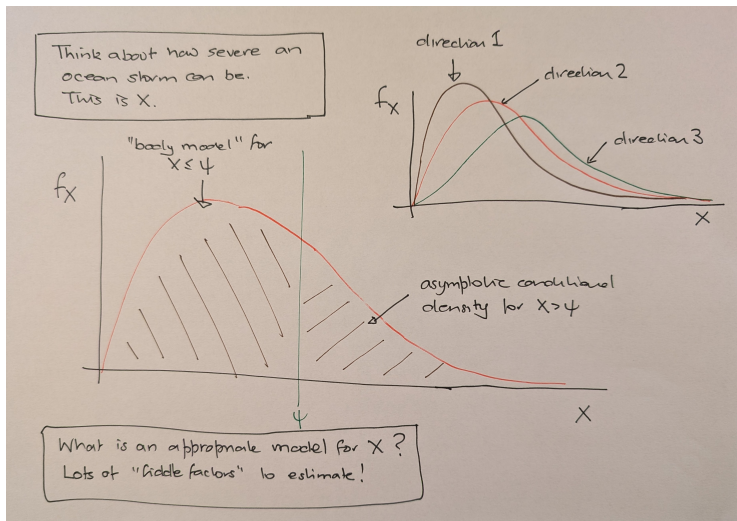 Think about how severe an
ocean storm can be.
This is X.
direction 1
direction 2
direction 3
fx
X
"body model" for
X ≤ ψ
fx
asymptotic conditional
density for X>ψ
X
ψ
What is an appropriate model for X ?
Lots of "fiddle factors" to estimate!